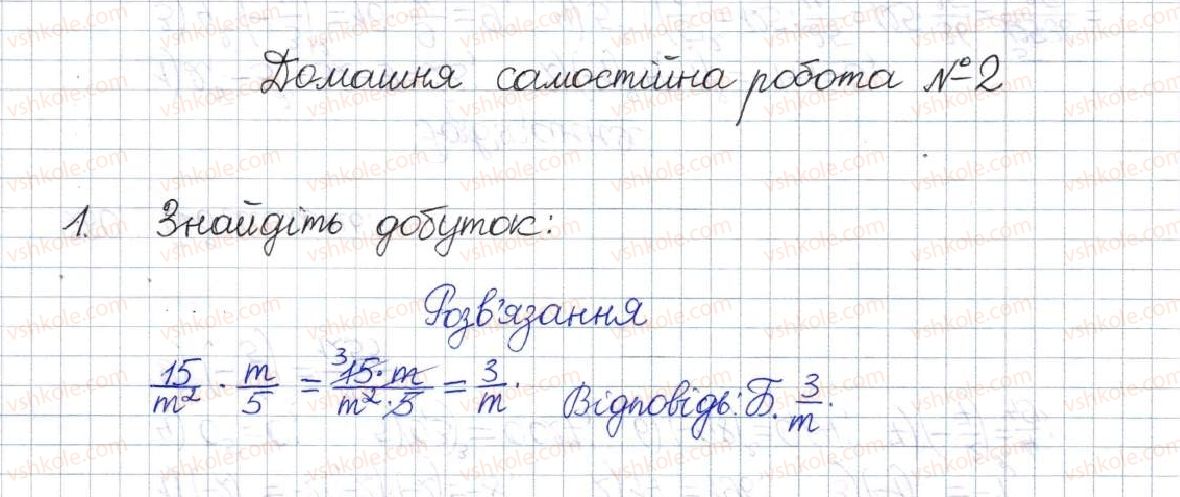 Домашня самостійна робота №2
1. Знайдіть добуток:
Розв'язання
15/m² · m/5 = 15·m/m²·5 = 3/m. Відповідь: Б. 3/m.